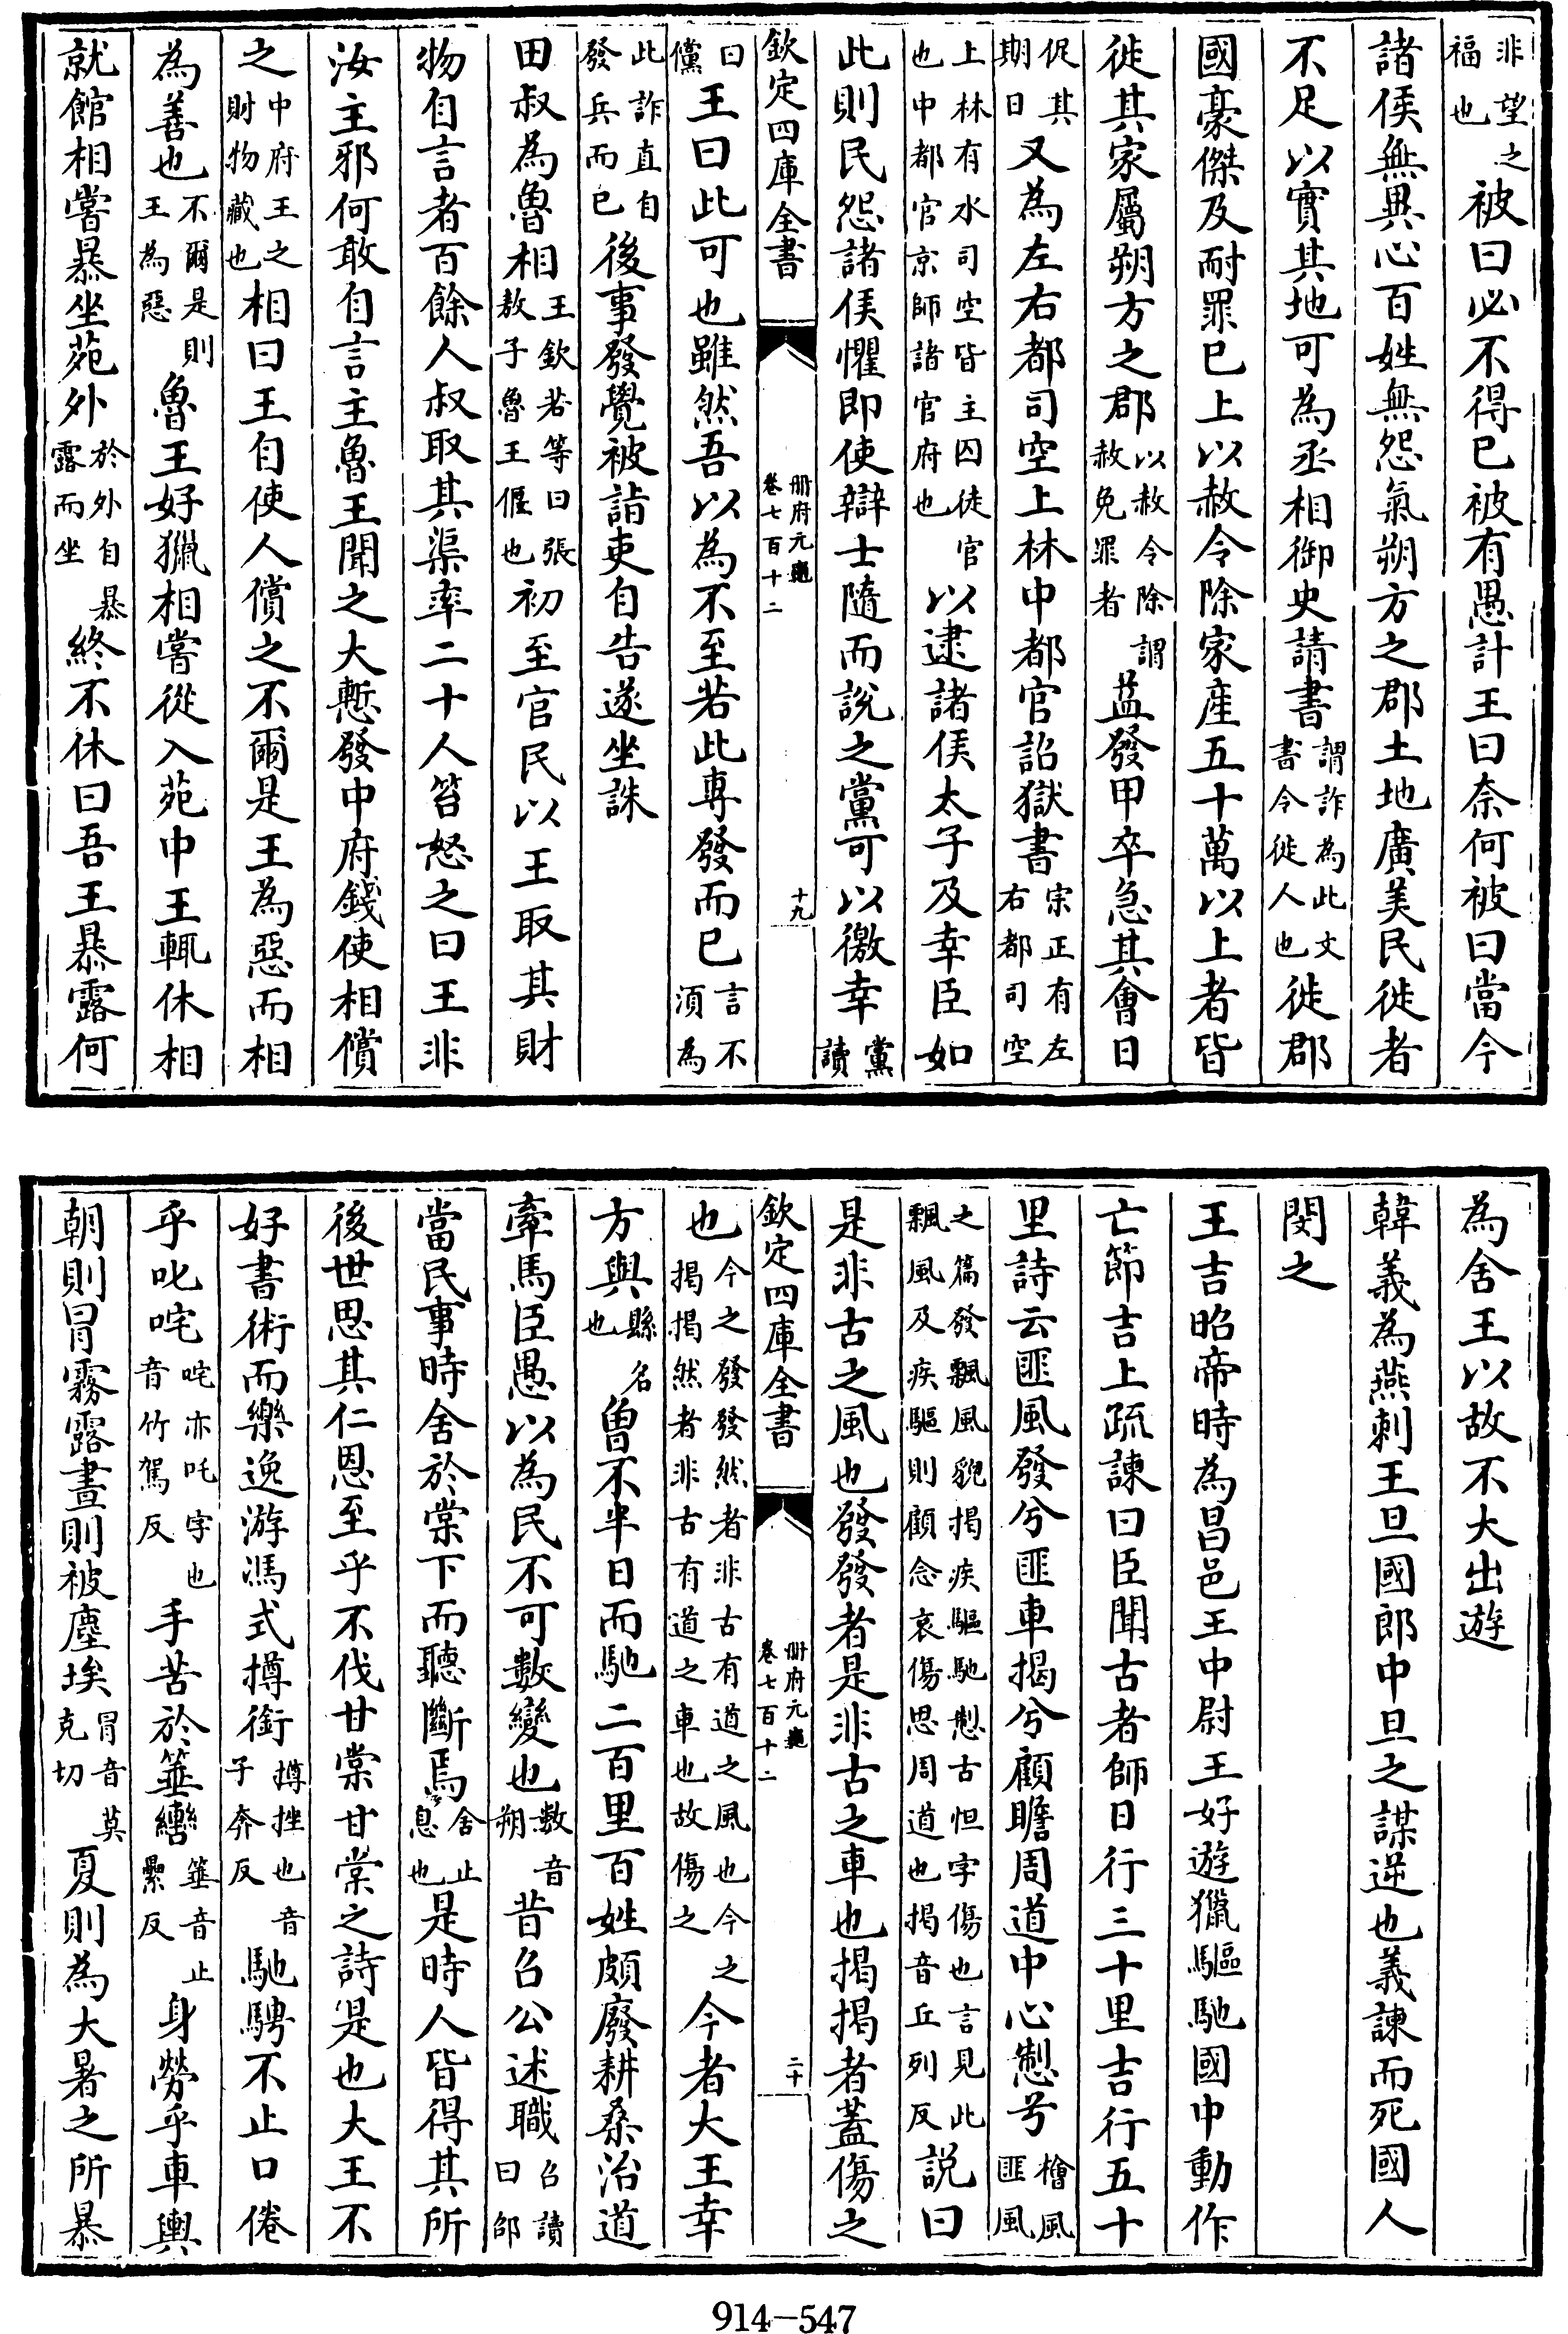 非望之福也被曰必不得已被有愚計王曰奈何被曰當今
諸侯無異心百姓無怨氣朔方之郡土地廣美民徙者
不足以實其地可為丞相御史請書謂詐為此文書令徙人也徙郡
國豪傑及耐罪已上以赦令除家産五十萬以上者皆
徙其家屬朔方之郡以赦令除謂赦免罪者益發甲卒急其會日
促其期日又為左右都司空上林中都官詔獄書宗正有左右都司空
上林有水司空皆主囚徒官也中都官京師諸官府也以逮諸侯太子及幸臣如
此則民怨諸侯懼即使辯士隨而說之黨可以徼幸黨讀
欽定四庫全書
冊府元龜
卷七百十二
十九
曰儻王曰此可也雖然吾以為不至若此專發而已言不須為
此詐直自發兵而已後事發覺被詣吏自告遂坐誅
田叔為魯相王欽若等曰張敖子魯王偃也初至官民以王取其財
物自言者百餘人叔取其渠率二十人笞怒之曰王非
汝主邪何敢自言主魯王聞之大慙發中府錢使相償
之中府王之財物藏也相曰王自使人償之不爾是王為惡而相
為善也不爾是則王為惡魯王好獵相嘗從入苑中王輒休相
就館相嘗暴坐苑外於外自暴露而坐終不休曰吾王暴露何
為舍王以故不大出遊
韓義為燕刺王旦國郎中旦之謀逆也義諫而死國人
閔之
王吉昭帝時為昌邑王中尉王好遊獵驅馳國中動作
亡節吉上疏諫曰臣聞古者師日行三十里吉行五十
里詩云匪風發兮匪車揭兮顧瞻周道中心㤠兮檜風匪風
之篇發飄風貌揭疾驅貌㤠古怛字傷也言見此飄風及疾驅則顧念哀傷思周道也揭音丘列反說曰
是非古之風也發發者是非古之車也揭揭者蓋傷之
欽定四庫全書
冊府元龜
卷七百十二
二十
也今之發發然者非古有道之風也今之揭揭然者非古有道之車也故傷之今者大王幸
方與縣名也曾不半日而馳二百里百姓頗廢耕桑治道
牽馬臣愚以為民不可數變也數音朔昔召公述職召讀曰邵
當民事時舍於棠下而聽斷焉舍止息也是時人皆得其所
後世思其仁恩至乎不伐甘棠甘棠之詩是也大王不
好書術而樂逸游馮式撙銜撙挫也音子夲反馳騁不止口倦
乎叱咤咤亦吒字也音竹駕反手苦於箠轡箠音止纍反身勞乎車輿
朝則冒霧露晝則被塵埃冒音莫克切夏則為大暑之所暴
914-547